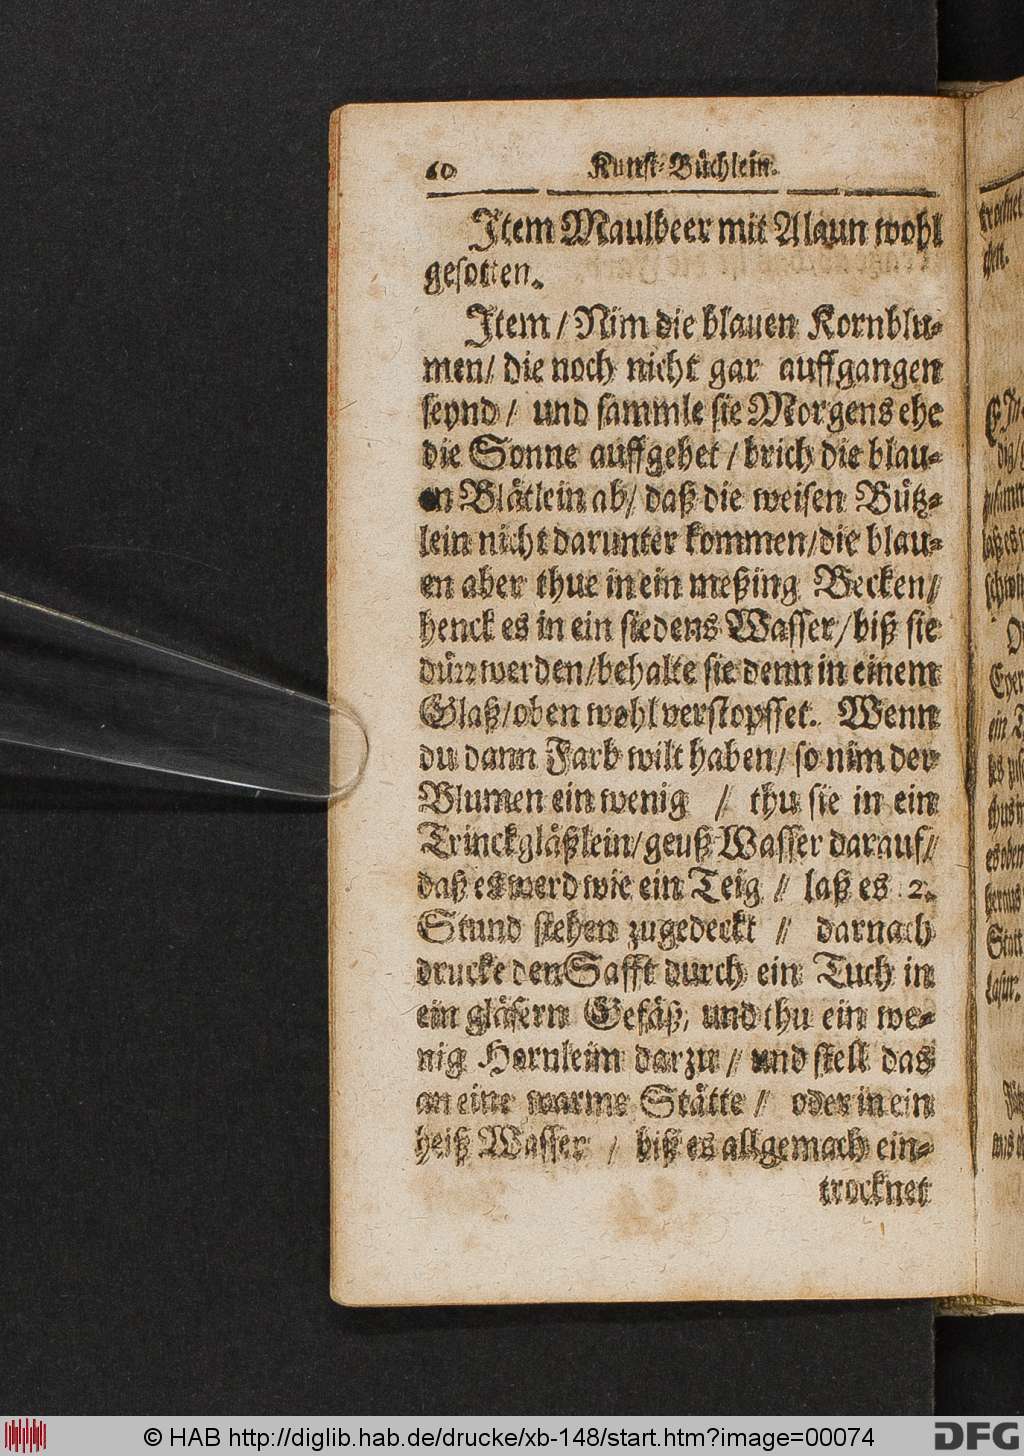 60 Kunst-Büchlein.
Item Maulbeer mit Alaun wohl
gesotten.
Item / Nim die blauen Kornblu-
men / die noch nicht gar auffgangen
seynd / und sammle sie Morgens ehe
die Sonne auffgehet / brich die blau-
en Blätlein ab / daß die weisen Bütz-
lein nicht darunter kommen / die blau-
en aber thue in ein meßing Becken /
henck es in ein siedens Wasser / biß sie
dürr werden / behalte sie denn in einem
Glaß / oben wohl verstopffet. Wenn
du dann Farb wilt haben / so nim der
Blumen ein wenig / thu sie in ein
Trinckgläßlein / geuß Wasser darauf /
daß es werd wie ein Teig / laß es 2.
Stund stehen zugedeckt / darnach
drucke den Safft durch ein Tuch in
ein gläsern Gefäß, und thu ein we-
nig Hornleim darzu / und stell das
an eine warme Stätte / oder in ein
heiß Wasser / biß es allgemach ein-
trocknet
© HAB http://diglib.hab.de/drucke/xb-148/start.htm?image=00074
DFG